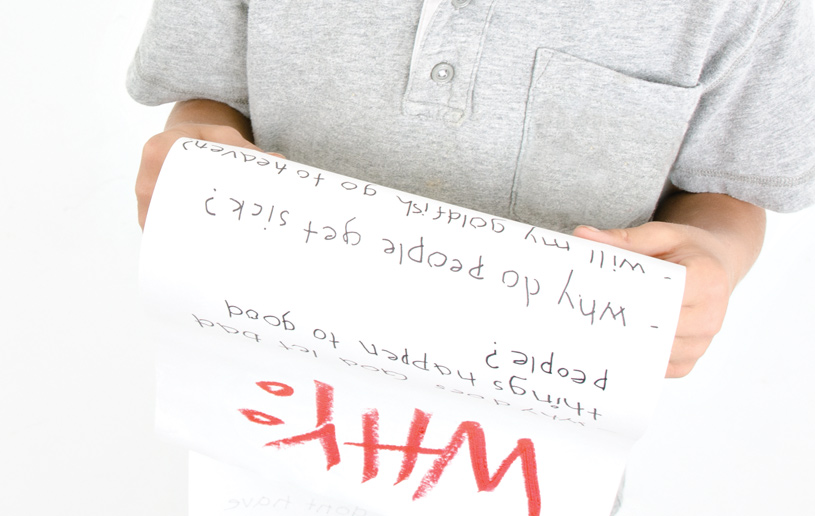 WHY:
- why does god let bad
things happen to good
people?
- why do people get sick?
- will my goldfish go to heaven?